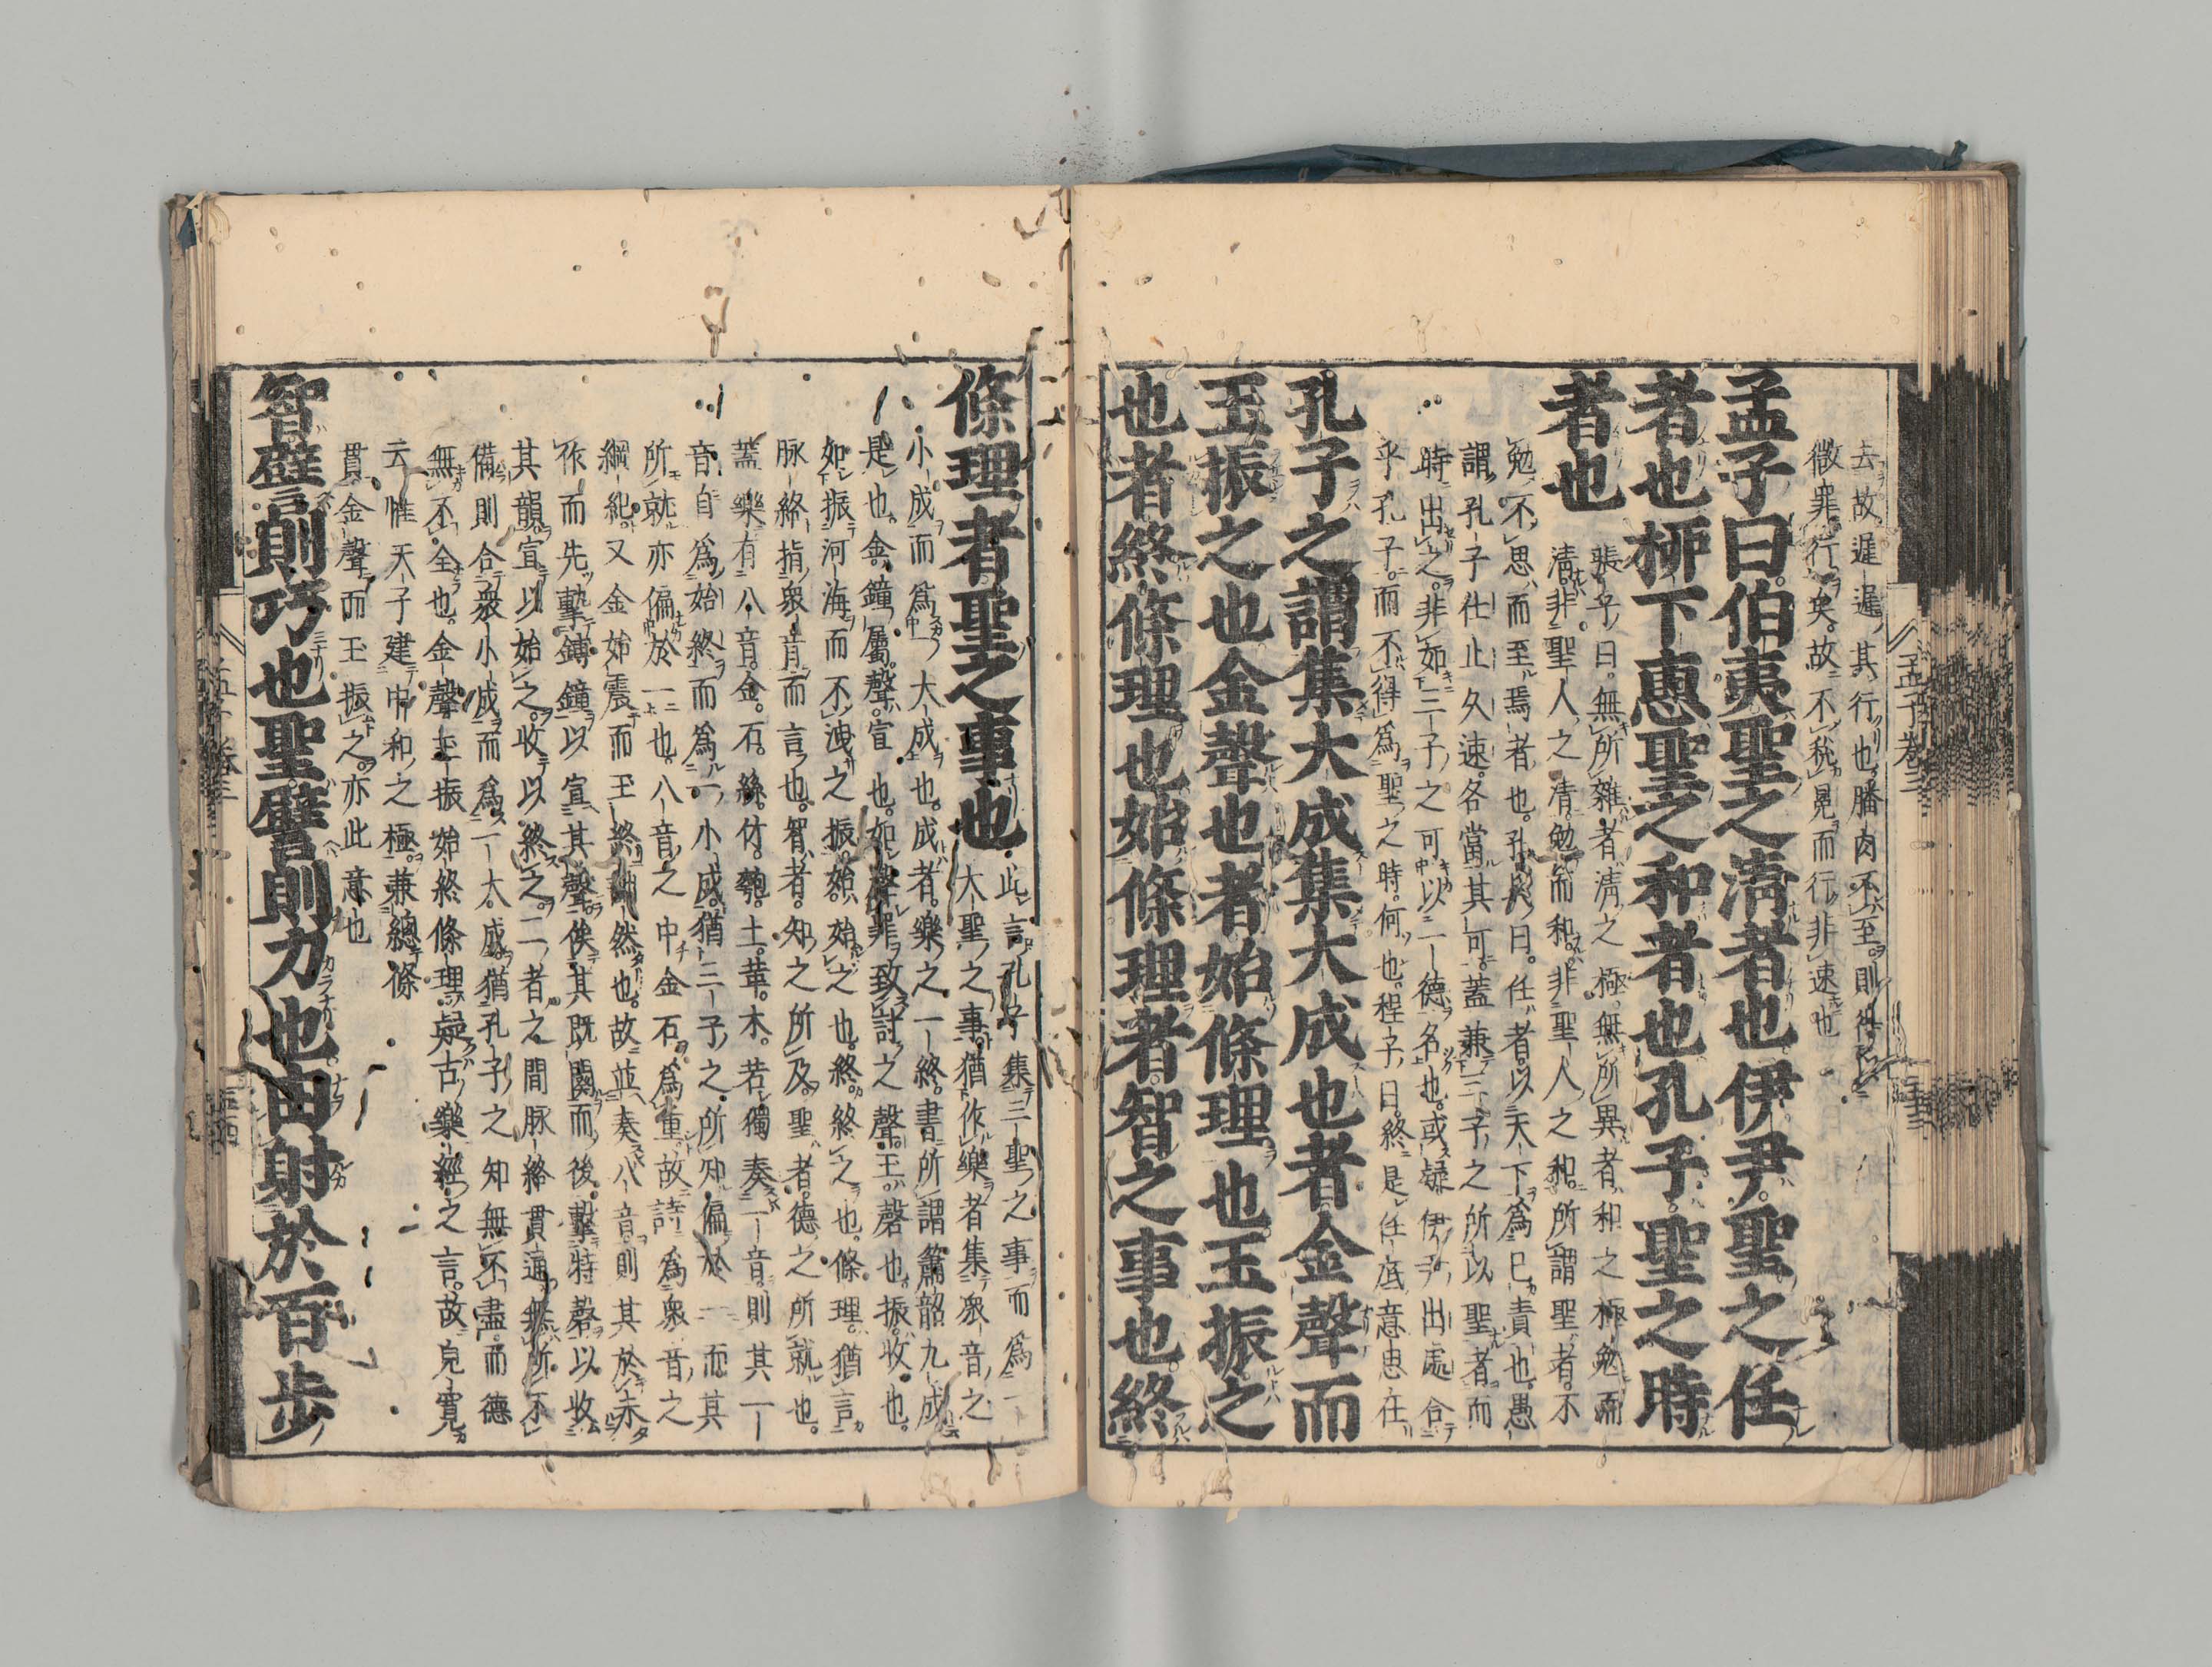 去故遲遲其行也膰肉不至則得以
微罪行矣故不稅冕而行非速也
孟子曰伯夷聖之淸者也伊尹聖之任
者也柳下惠聖之和者也孔子聖之時
者也
張子曰無所雜者淸之極無所異者和之極勉而
淸非聖人之淸勉而和非聖人之和所謂聖者不
勉不思而至焉者也孔氏曰任者以天下爲己責也愚
謂孔子仕止久速各當其可蓋兼三子之所以聖者而
時出之非如三子之可以一德名也或疑伊尹出處合
乎孔子而不得爲聖之時何也程子曰終是任底意思在
孔子之謂集大成集大成也者金聲而
玉振之也金聲也者始條理也玉振之
也者終條理也始條理者智之事也終
孟子卷三
條理者聖之事也
此言孔子集三聖之事而爲一
大聖之事猶作樂者集衆音之
小成而爲大成也成者樂之一終書所謂簫韶九成
是也金鐘屬聲宣也如聲罪致討之聲玉磬也振收也
如振河海而不洩之振始始之也終終之也條理猶言
脉絡指衆音而言也智者知之所及聖者德之所就也
蓋樂有八音金石絲竹匏土革木若獨奏一音則其一
音自爲始終而爲一小成猶三子之所知偏於一而其
所就亦偏於一也八音之中金石爲重故特爲衆音之
綱紀又金始震而玉終詘然也故並奏八音則其於未
作而先擊鎛鐘以宣其聲俟其既闋而後擊特磬以收
其韻宣以始之收以終之二者之間脉絡貫通無所不
備則合衆小成而爲一大成猶孔子之知無不盡而德
無不全也金聲玉振始終條理疑古樂經之言故皃寬
云惟天子建中和之極兼總條
貫金聲而玉振之亦此意也
智譬則巧也聖譬則力也由射於百步